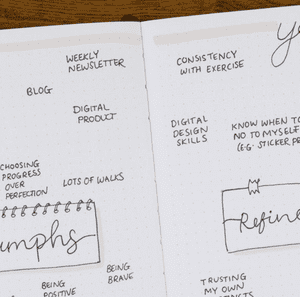 WEEKLY
NEWSLETTER
BLOG
DIGITAL
PRODUCT
CHOOSING
PROGRESS
OVER
PERFECTION
LOTS OF WALKS
umphs
BEING
BRAVE
BEING
POSITIVE
Ye
CONSISTENCY
WITH EXERCISE
DIGITAL
DESIGN
SKILLS
KNOW WHEN TO
NO TO MYSELF
(E.G. STICKER PE
Refine
TRUSTING
MY OWN